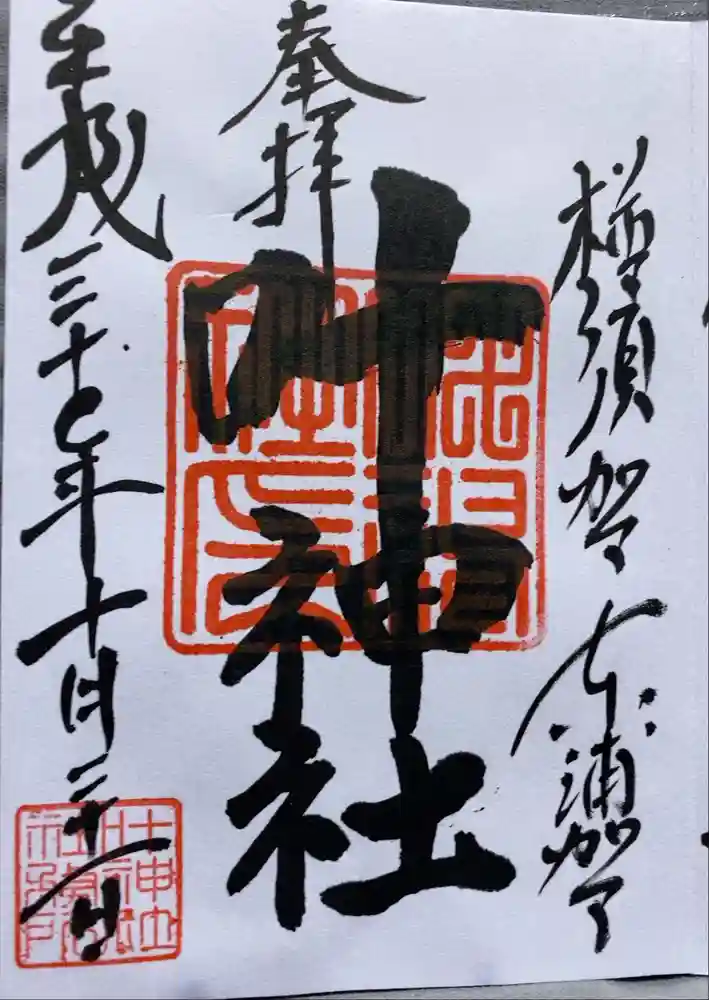 横須賀東浦賀
奉拝
叶神社
平成二十七年十月二十一日